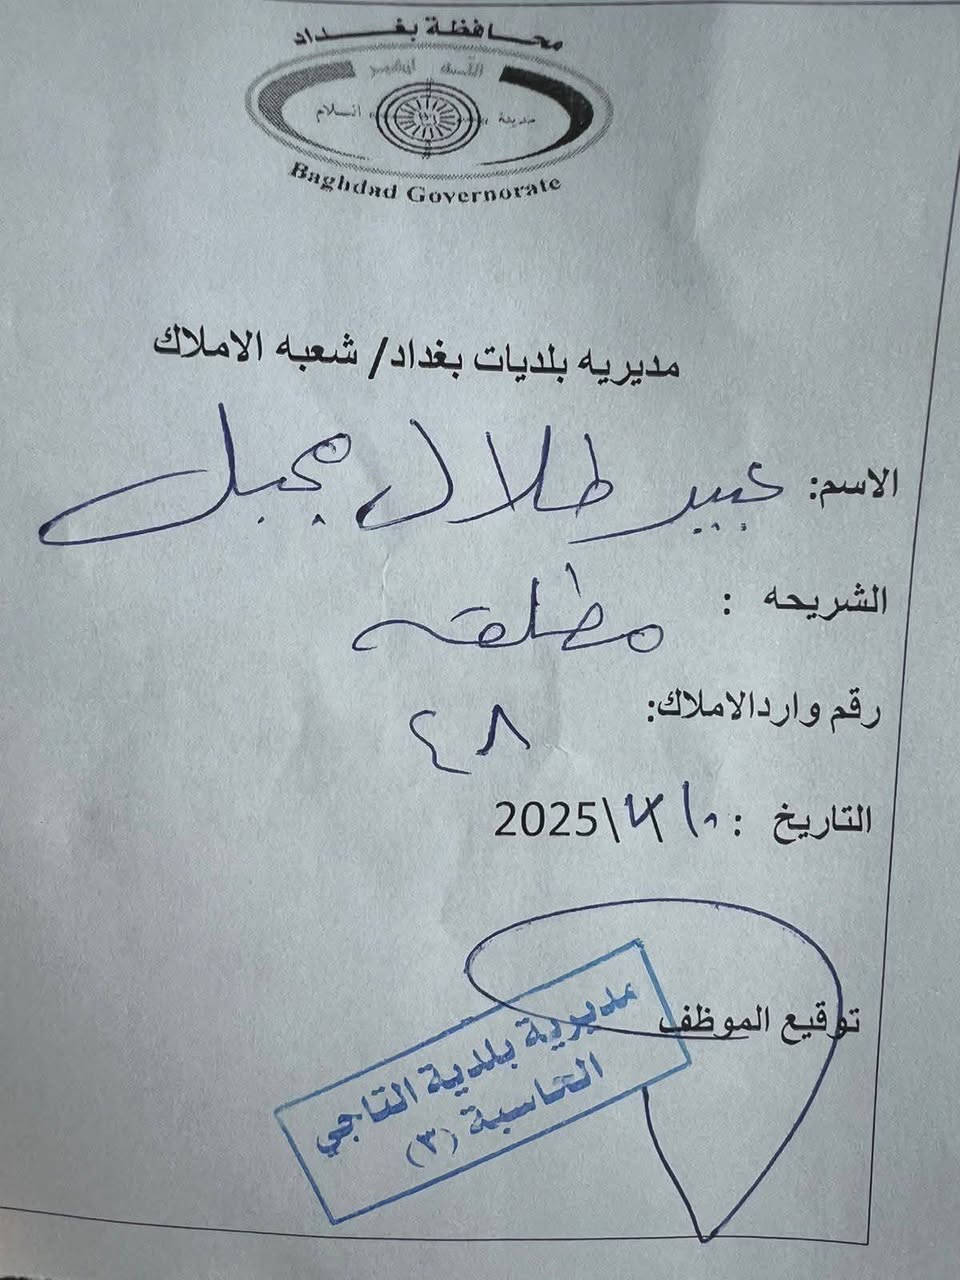 محافظة بغداد
مدينة السلام
Baghdad Governorate
مديريه بلديات بغداد/ شعبه الاملاك
الاسم: عبير طلال مجبل
الشريحه : مطلقه
رقم واردالاملاك: ٤٨
التاريخ : ١٠/ \2025
توقيع الموظف
مديرية بلدية التاجي
التاسبة (٣)